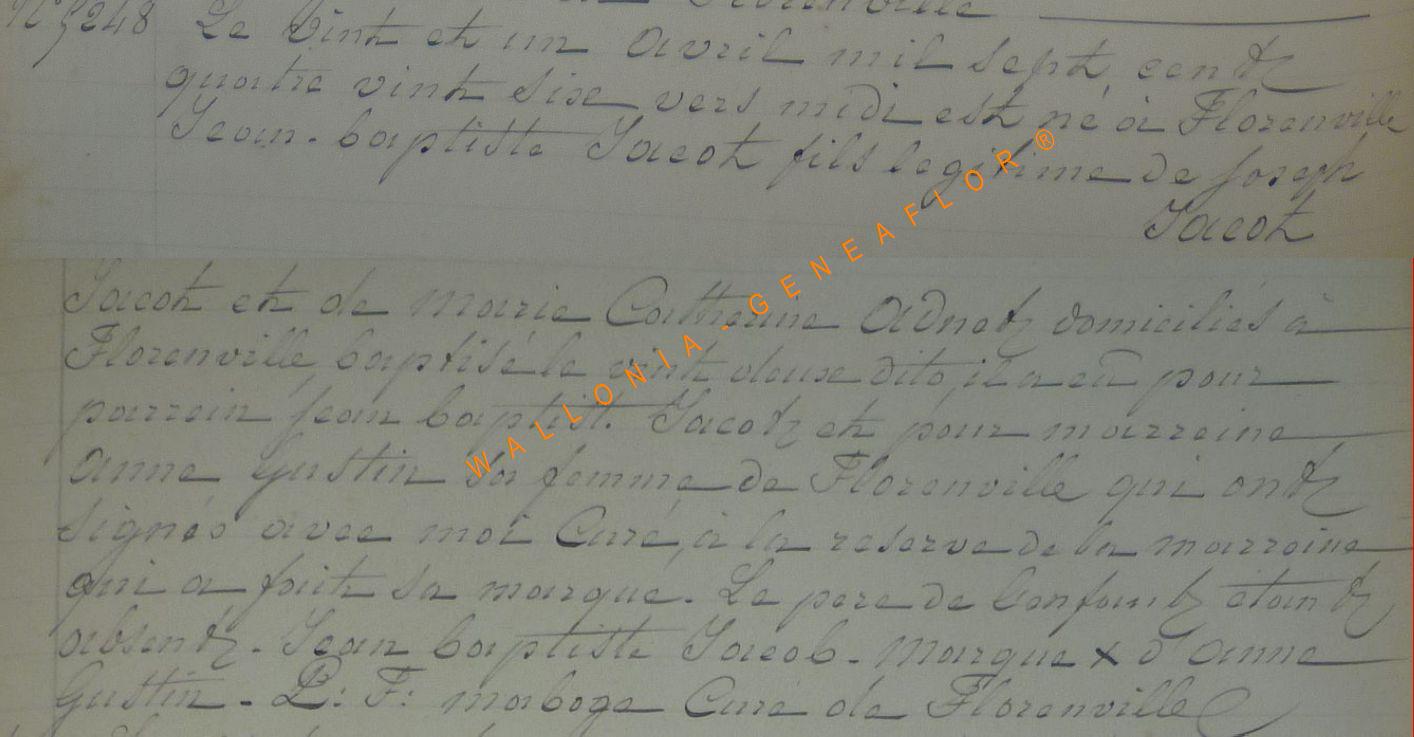 Florenville
N° 5248 Le vint et un avril mil sept cent
quatre vint sixe vers midi est né à Florenville
Jean-baptiste Jacot fils legitime de joseph
Jacot
Jacot et de marie Catherine Adnet domiciliés à
Florenville baptisé le vint deuxe dito il a eu pour
parrein jean baptist. Jacot et pour marreine
anne gustin sa femme de Florenville qui ont
signés avec moi Curé, à la reserve de la marreine
qui a fait sa marque. Le pere de l'enfant etant
absent. Jean baptiste Jacob. Marque x d'anne
Gustin. P: F: maboge Curé de Florenville
WALLONIA-GENEAFLOR ®